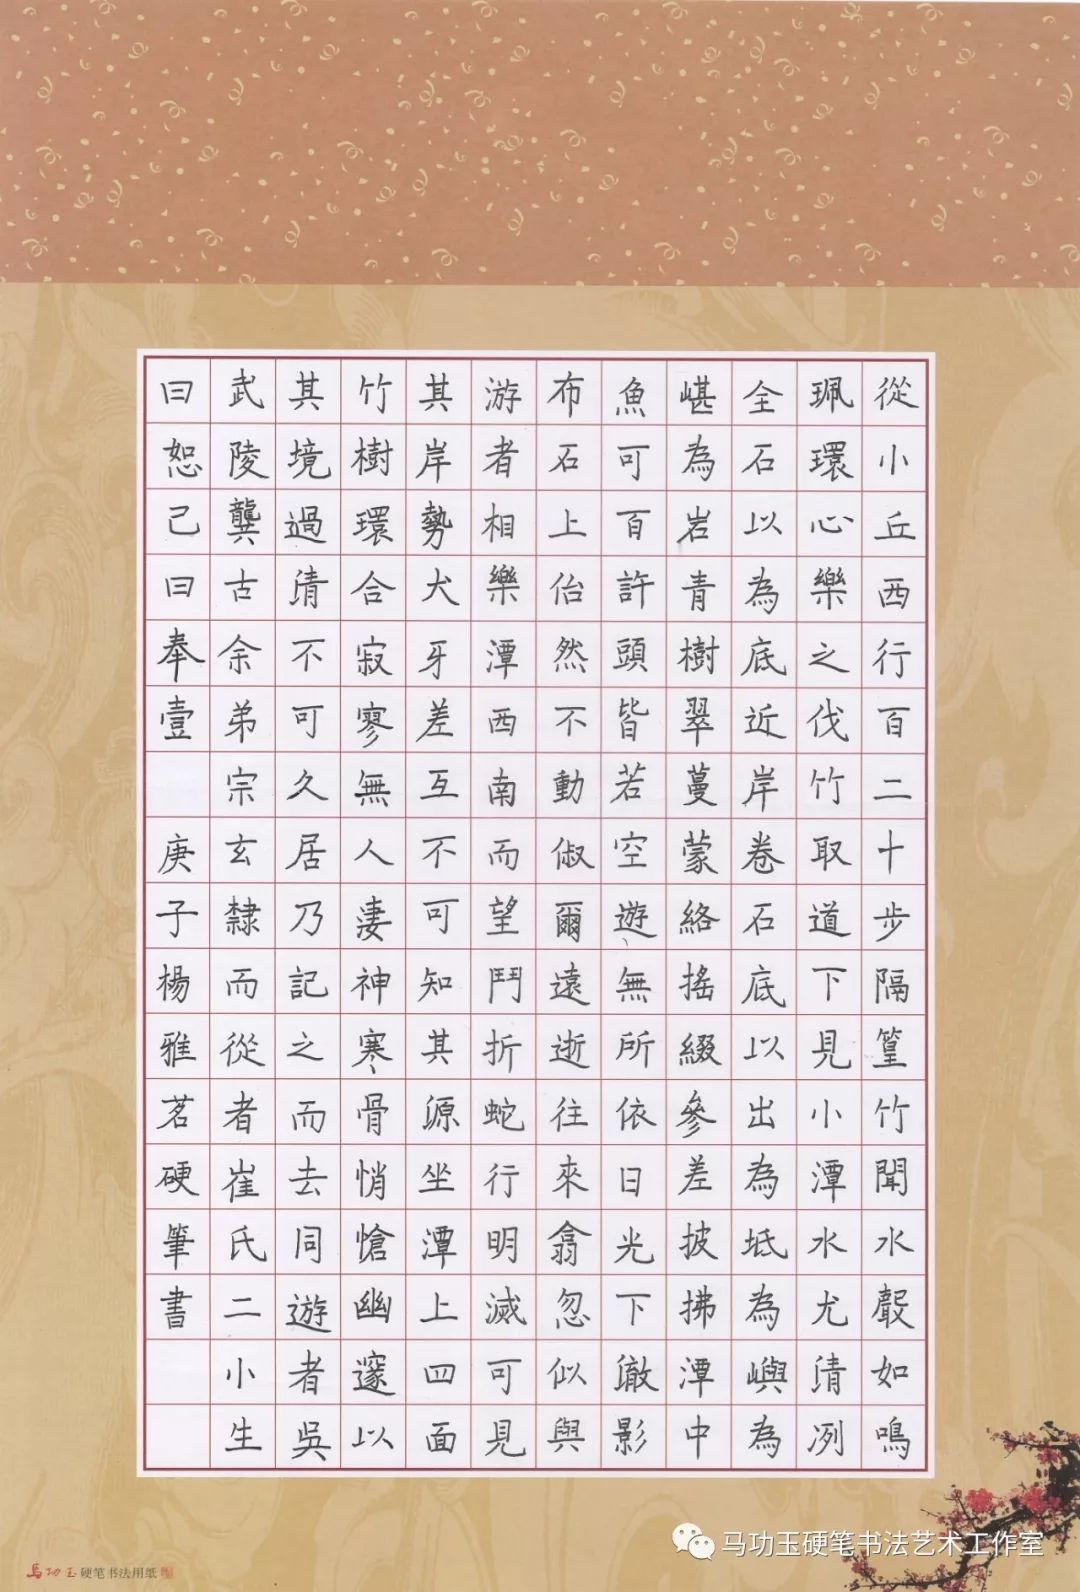 從小丘西行百二十步隔篁竹聞水聲如鳴
珮環心樂之伐竹取道下見小潭水尤清冽
全石以為底近岸卷石底以出為坻為嶼為
嵁為岩青樹翠蔓蒙絡搖綴參差披拂潭中
魚可百許頭皆若空遊無所依日光下澈影
布石上佁然不動俶爾遠逝往來翕忽似與
游者相樂潭西南而望鬥折蛇行明滅可見
其岸勢犬牙差互不可知其源坐潭上四面
竹樹環合寂寥無人淒神寒骨悄愴幽邃以
其境過清不可久居乃記之而去同遊者吳
武陵龔古余弟宗玄隸而從者崔氏二小生
曰恕己曰奉壹 庚子楊雅茗硬筆書
马功玉硬笔书法艺术工作室
马功玉硬笔书法用纸